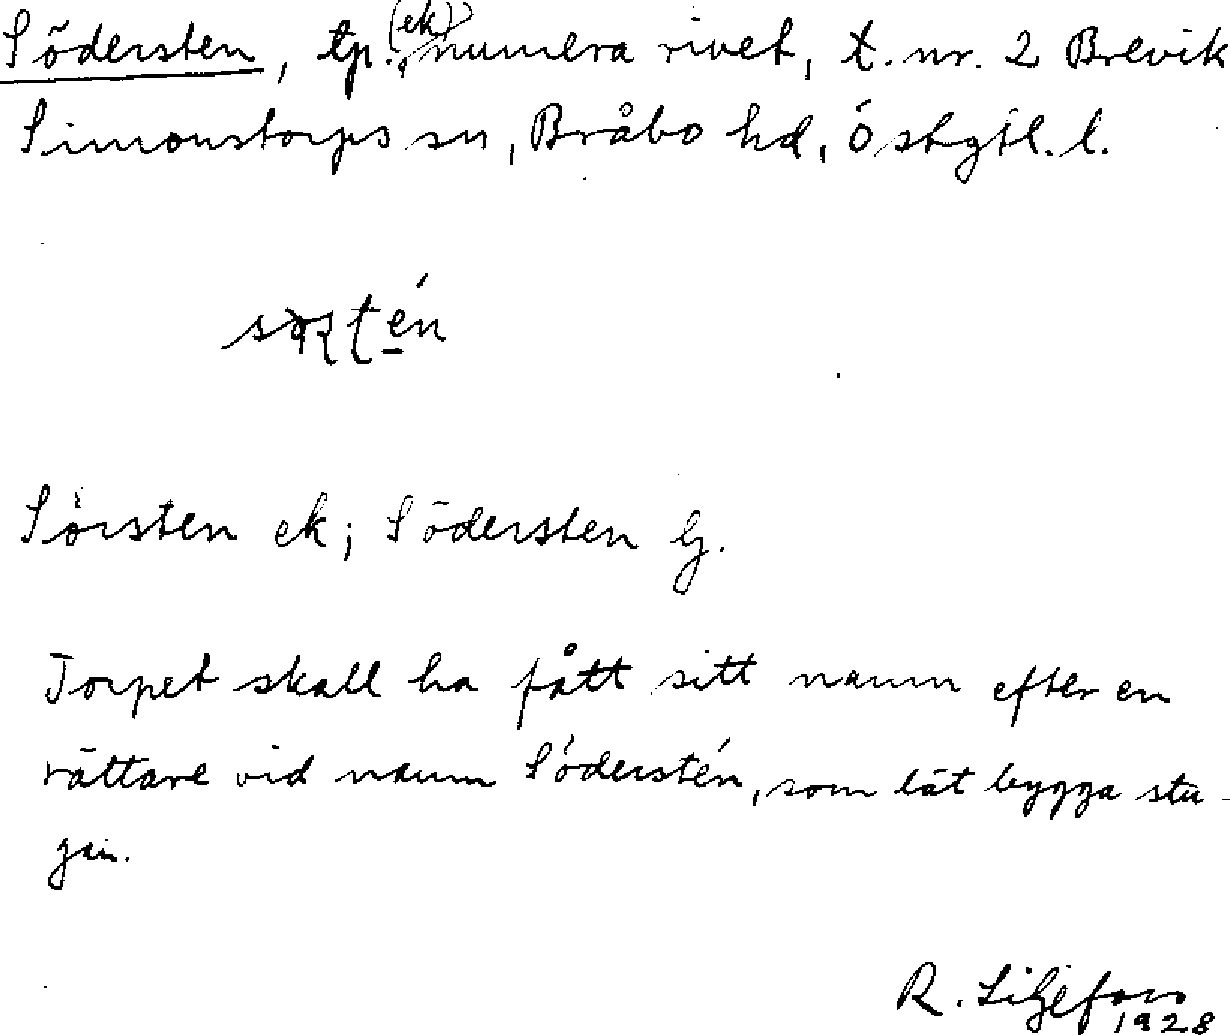 Södersten, tp. (ek), numera rivet, t. nr. 2 Brevik
Simonstorps sn, Bråbo hd, Östgtl. l.
Sörsten ek; Södersten lj.
Torpet skall ha fått sitt namn efter en
rättare vid namn Söderstén, som lät bygga stu-
gan.
R. Liljefors
1928